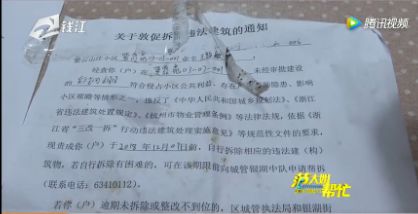 钱江
腾讯视频
关于敦促拆除违法建筑的通知
经查你(户)在 未经审批建设
的 符合侵占小区公共利益,存在 隐患、影响
小区观瞻等情形之一,违反了《中华人民共和国城乡规划法》、《浙江
省违法建筑处置规定》、《杭州市物业管理条例》等法律法规,依据《浙
江省“三改一拆”行动违法建筑处理实施意见》等规范性文件的要求,
现责成你(户)于2018年12月07日前,自行拆除相应的违法建(构)
筑物,若自行拆除有困难的,可在该期限前向城管银湖中队申请帮拆
(联系电话:63410112)。
若你(户)逾期未拆除或整改不到位的,区城管执法局和银湖街
帮忙